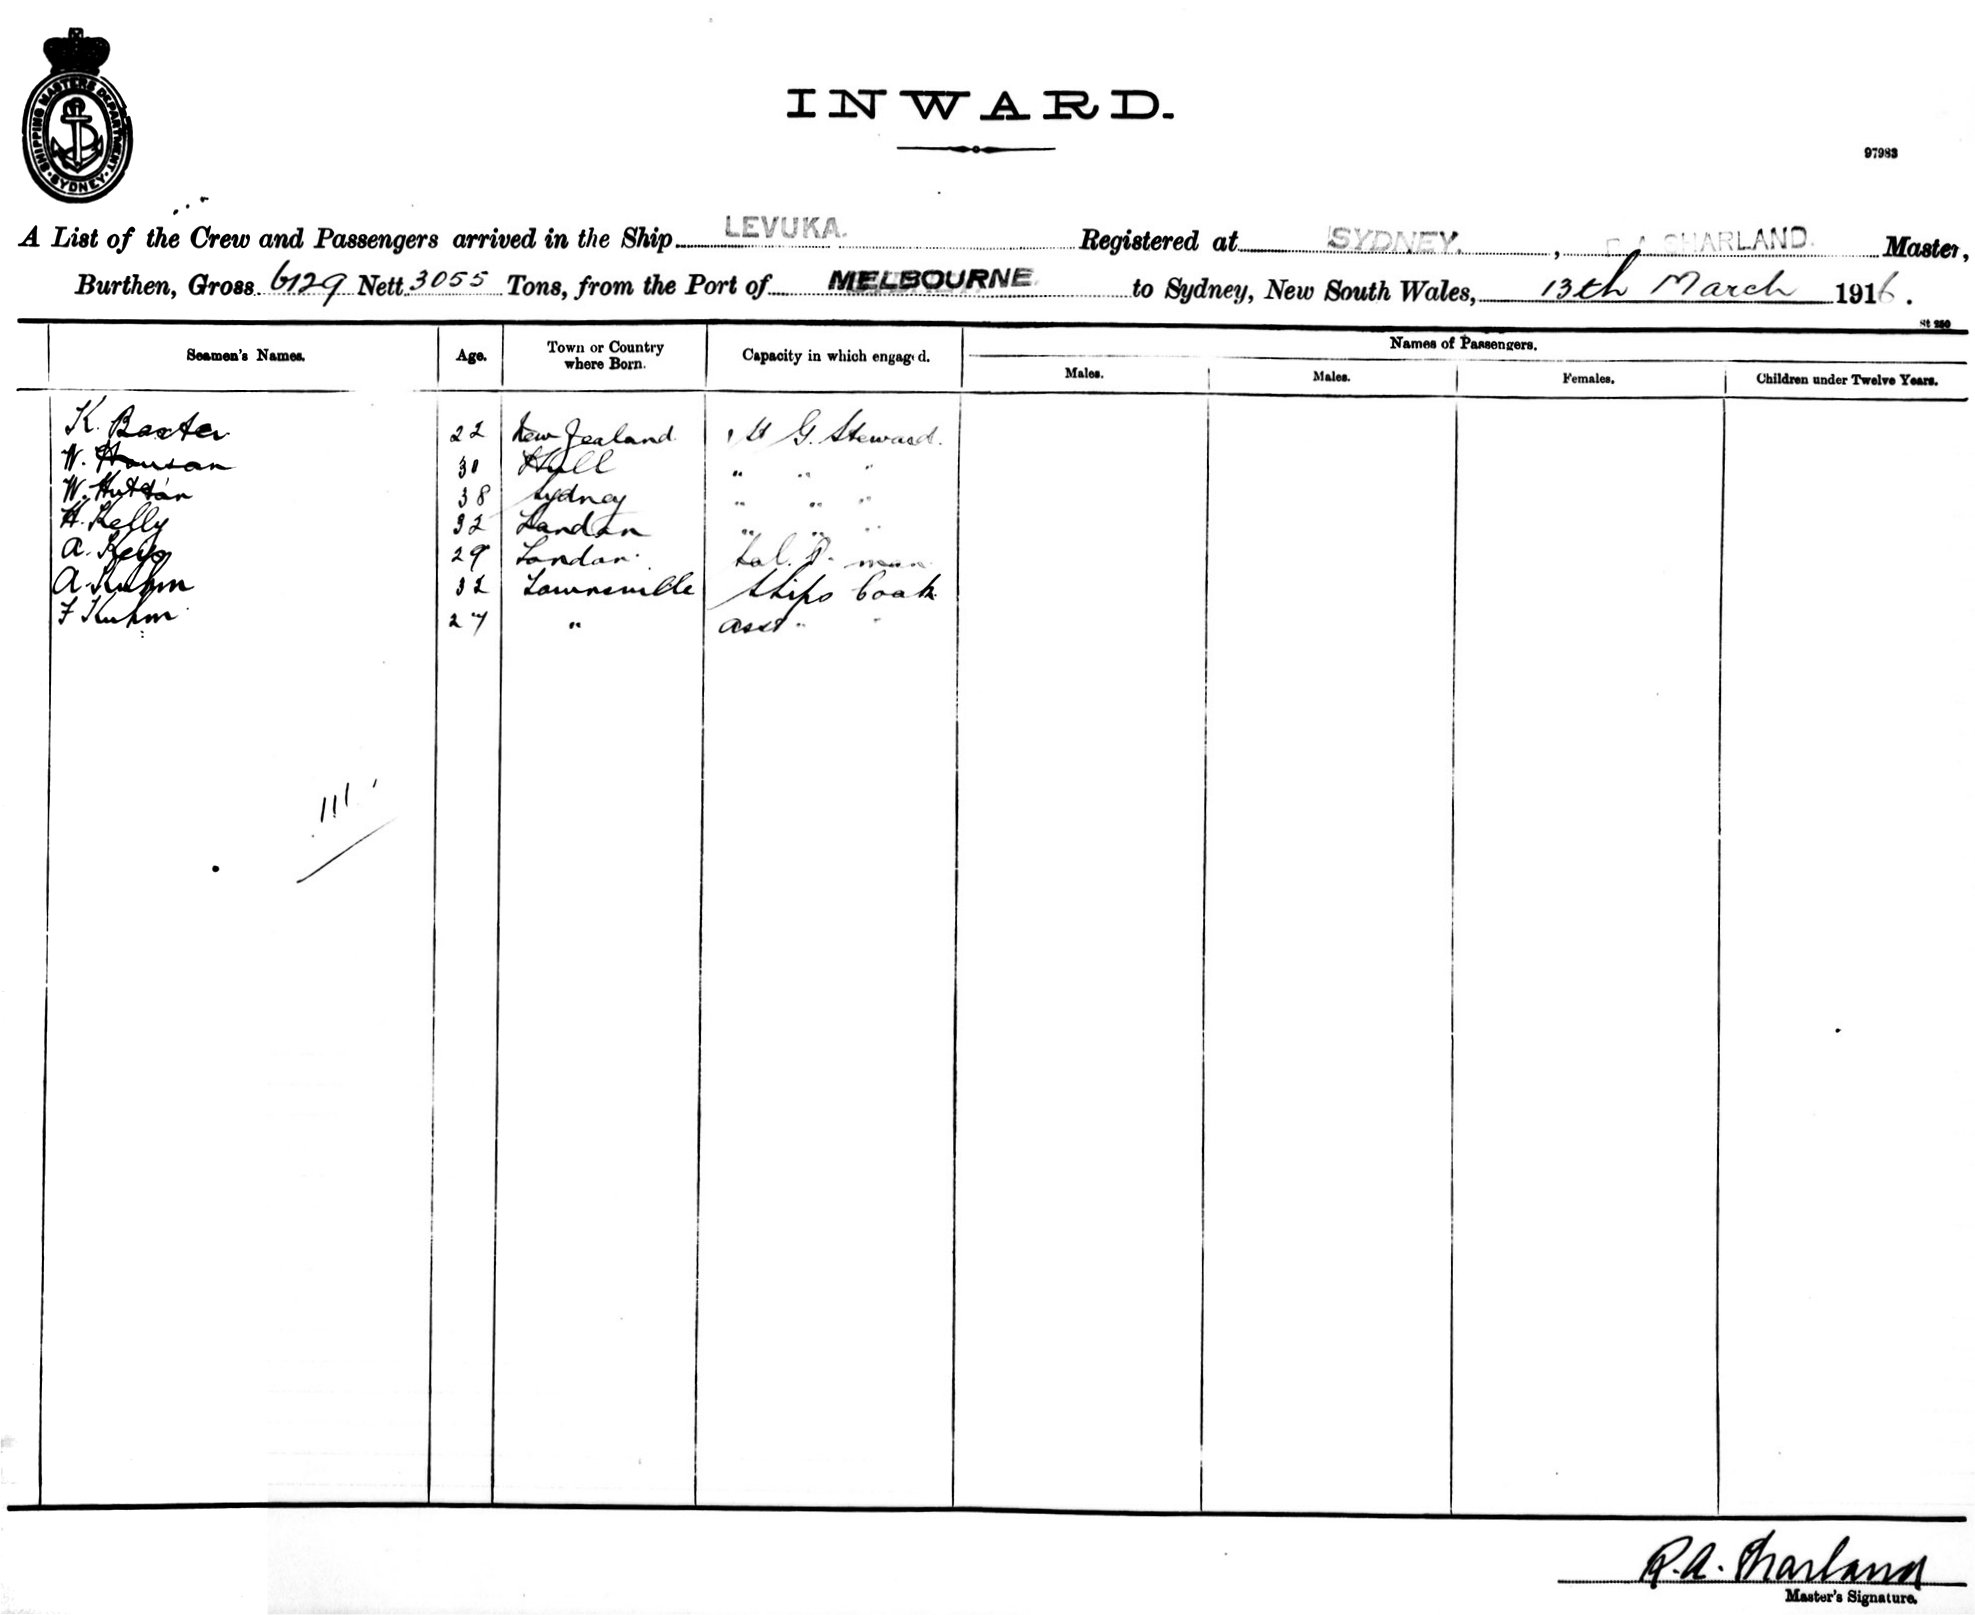 SHIPPING MASTERS DEPARTMENT
SYDNEY
INWARD.
97983
A List of the Crew and Passengers arrived in the Ship LEVUKA. Registered at SYDNEY. , SHARLAND. Master,
Burthen, Gross 6129 Nett 3055 Tons, from the Port of MELBOURNE to Sydney, New South Wales, 13th March 1916.
St 250
Seamen's Names. Age. Town or Country where Born. Capacity in which engaged. Names of Passengers.
Males. Males. Females. Children under Twelve Years.
K. Baxter 22 New Zealand G. Steward.
W. 30 Hull " " "
W. Hutton 38 Sydney " " "
H. Kelly 32 London " " "
A. 29 London man
A. Kuhm 32 Townsville Ships Cook
F Kuhm 27 " asst " "
R.A. Sharland
Master's Signature.